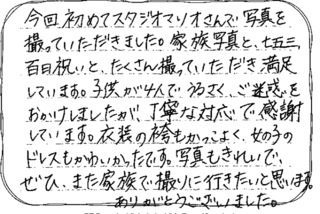 今回初めてスタジオマリオさんで写真を
撮っていただきました。家族写真と、七五三、
百日祝いと、たくさん撮っていただき満足
しています。子供が4人でうるさく、ご迷惑を
おかけしましたが、丁寧な対応で感謝
しています。衣装の袴もかっこよく、女の子の
ドレスもかわいかったです。写真もきれいで、
ぜひ、また家族で撮りに行きたいと思います。
ありがとうございました。